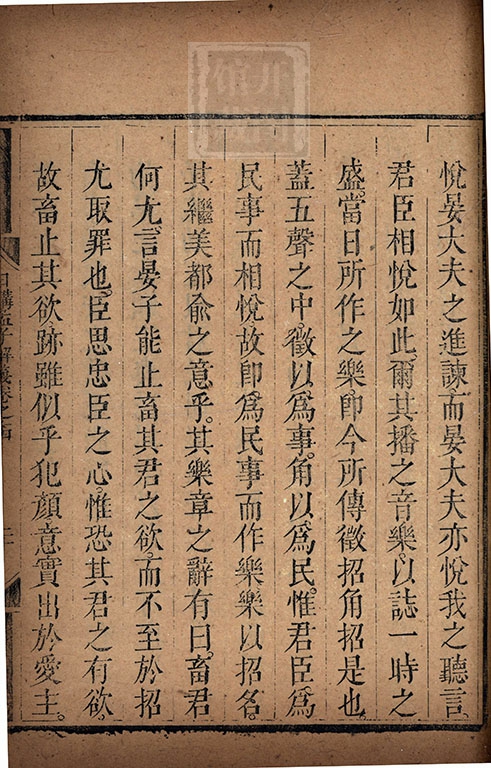 悅晏大夫之進諫而晏大夫亦悅我之聽言
君臣相悅如此爾其播之音樂以誌一時之
盛當日所作之樂即今所傳徵招角招是也
蓋五聲之中徵以爲事角以爲民惟君臣爲
民事而相悅故卽爲民事而作樂樂以招名
其繼美都俞之意乎其樂章之辭有曰畜君
何尤言晏子能止畜其君之欲而不至於招
尤取罪也臣思忠臣之心惟恐其君之有欲
故畜止其欲跡雖似乎犯顏意實出於愛主
日講孟子解義卷之